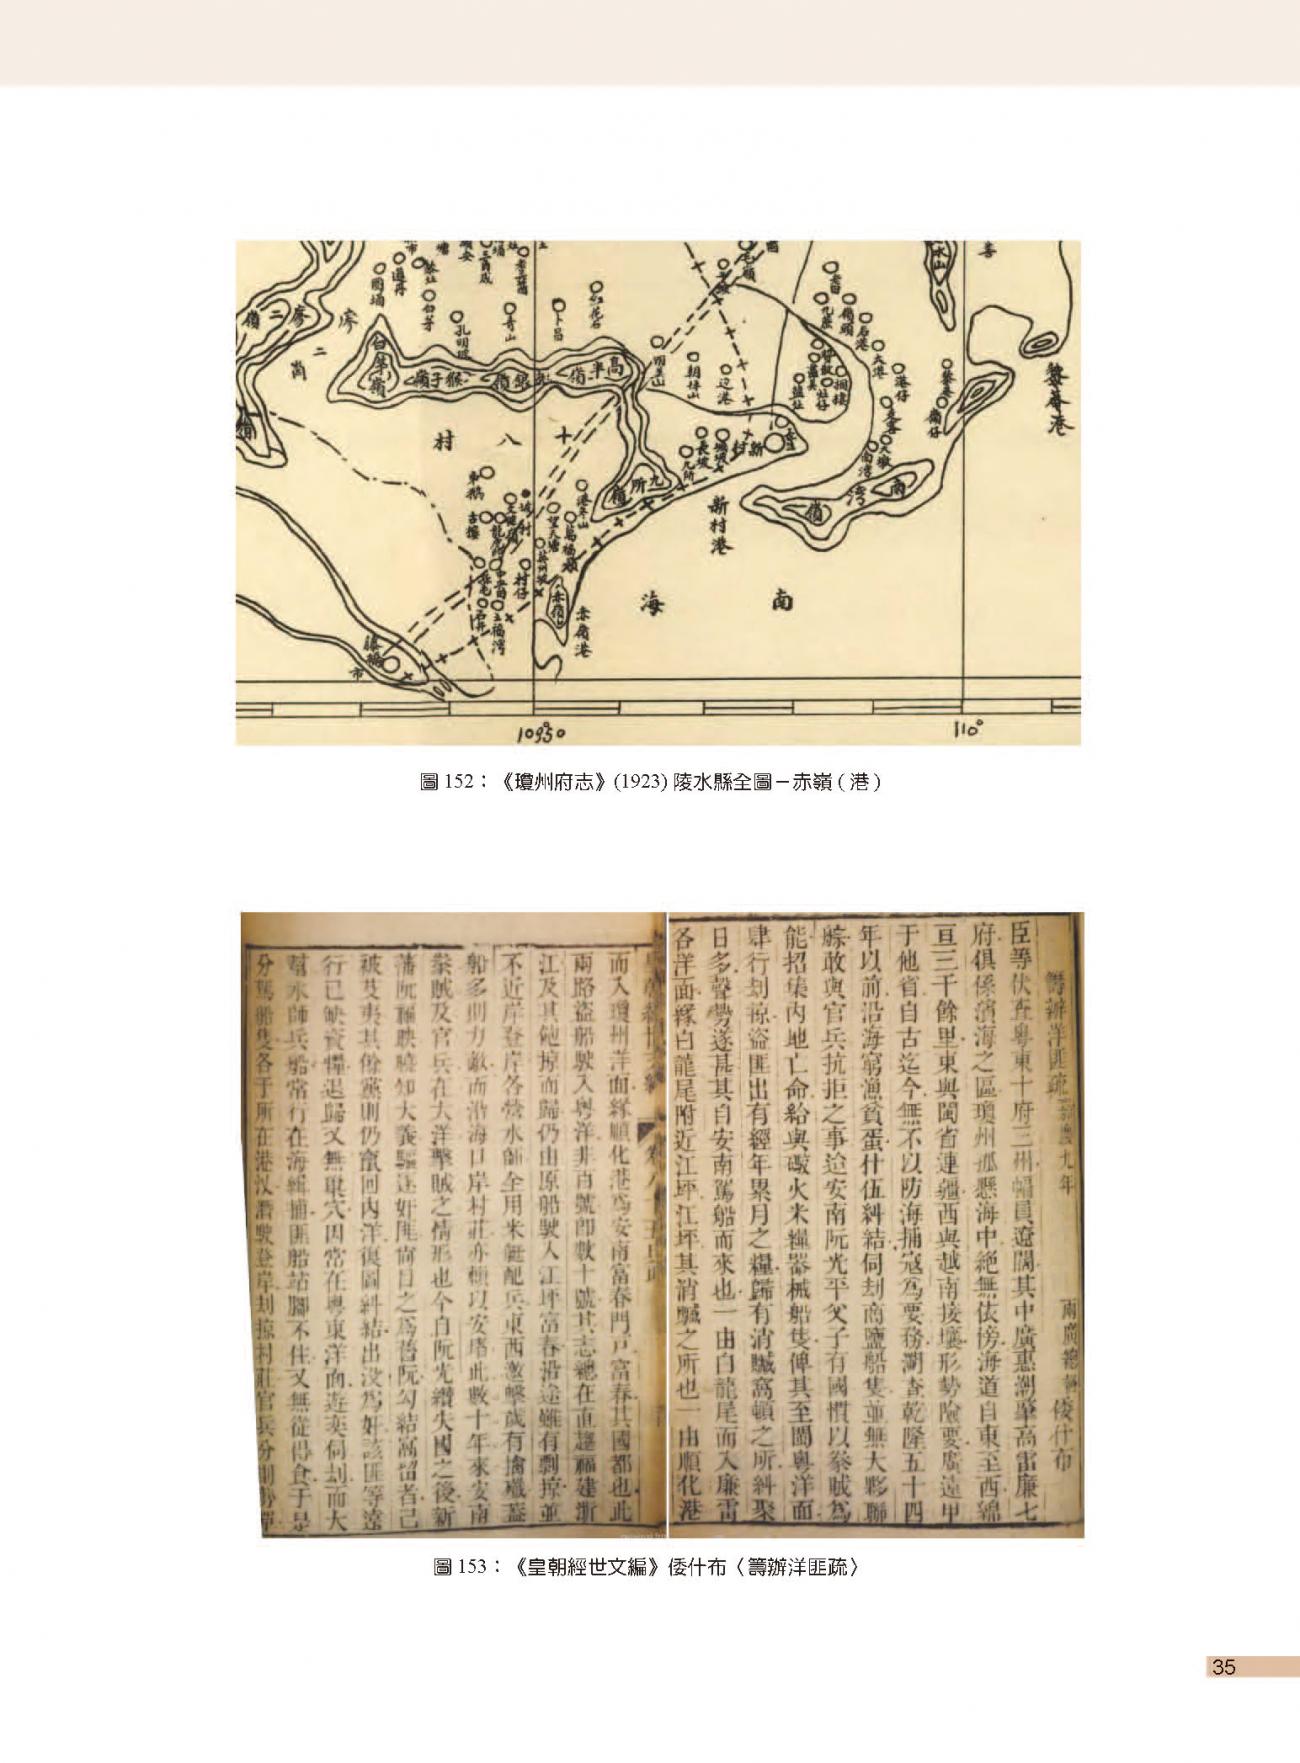 水山
嶺二廖
廖二崗
圓埇
過丹
白芽
孔明坡
青山
卜昌
紅花石
老田
嶺頭
石港
大港
港仔
黎庵港
白芽嶺
嶺子猴
嶺銀
嶺半高
朝拜山
边港
鹽灶
嶺仔
十八村
九所嶺
九所
長坡
新村
新村港
大墩
南湾
南湾嶺
東鵝
古樓
坡村
港平山
望天塘
村仔
石井
土福湾
赤嶺
赤嶺港
藤橋市
南海
109°30
110°
圖 152：《瓊州府志》(1923) 陵水縣全圖－赤嶺 ( 港 )
籌辦洋匪疏 嘉慶九年 兩廣總督 倭什布
臣等伏查粵東十府三州幅員遼闊其中廣惠潮肇高雷廉七
府俱係濱海之區瓊州孤懸海中絶無依傍海道自東至西綿
亘三千餘里東與閩省連疆西與越南接壤形勢險要廣遠甲
于他省自古迄今無不以防海捕寇為要務溯查乾隆五十四
年以前沿海窮漁貧蛋什伍糾結伺刦商鹽船隻並無大夥聯
䑸敢與官兵抗拒之事迨安南阮光平父子有國慣以豢賊為
能招集内地亡命給與礮火米糧器械船隻俾其至閩粤洋面
肆行刦掠盜匪出有經年累月之糧歸有消贓窩頓之所糾聚
日多聲勢遂甚其自安南駕船而來也一由白龍尾而入廉雷
各洋面緣白龍尾附近江坪江坪其消贓之所也一由順化港
而入瓊州洋面緣順化港為安南富春門戸富春其國都也此
兩路盜船駛入粤洋非百號即數十號其志總在直趨福建浙
江及其飽掠而歸仍由原船駛入江坪富春沿途雖有剽掠並
不近岸登岸各營水師全用米艇配兵東西邀擊歲有擒殲蓋
船多則力敵而沿海口岸村莊亦賴以安堵此數十年來安南
豢賊及官兵在大洋擊賊之情形也今自阮光纘失國之後新
藩阮福映曉知大義驅逐奸匪向日之為昔阮勾結窩留者己
被芟夷其餘黨則仍竄回内洋復圖糾結出没為奸該匪等遠
行已缺資糧退歸又無巢穴因常在粤東洋面近來伺刦而大
幫水師兵船常行在海緝捕匪船站腳不住又無從得食于是
分駕船隻各于所在港汊潛駛登岸刦掠村莊官兵分則勢單
圖 153：《皇朝經世文編》倭什布〈籌辦洋匪疏〉
35